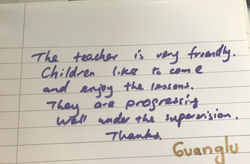 The teacher is very friendly.
Children like to come
and enjoy the lessons.
They are progressing
well under the supervision.
Thanks.
Guanglu